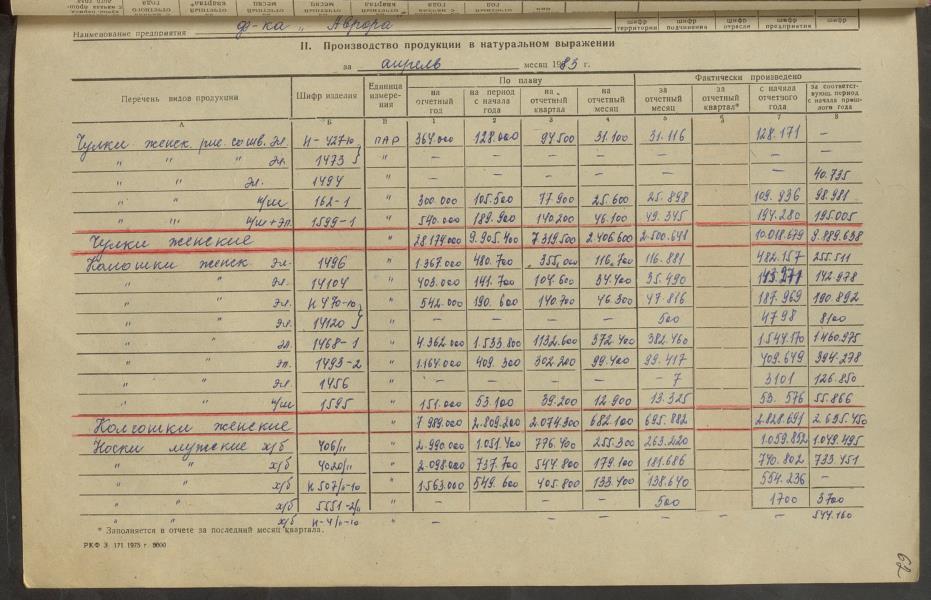 Наименование предприятия ф-ка „Аврора"
шифр территории шифр подчинения шифр отрасли шифр предприятия шифр
II. Производство продукции в натуральном выражении
за апрель месяц 1983 г.
Перечень видов продукции Шифр изделия Единица измерения По плану Фактически произведено
на отчетный год на период с начала года на отчетный квартал на отчетный месяц за отчетный месяц за отчетный квартал* с начала отчетного года за соответствующ. период с начала прошлого года
А Б В 1 2 3 4 5 6 7 8
Чулки женск. рис. со шв. эл. Н-427-10 ПАР 364.000 128.000 94.500 31.100 31.116 128.171 –
" " " эл. 1473 " – – – – – – –
" " эл. 1494 " – – – – – – 40.735
" " ч/ш 162-1 " 300.000 105.500 77.900 25.600 25.898 109.936 98.981
" " ч/ш+эл. 1599-1 " 540.000 189.900 140.200 46.100 49.345 194.280 195.005
Чулки женские " 28.174.000 9.905.400 7.319.500 2.406.600 2.500.641 10.018.679 9.889.638
Колготки женск эл. 1496 " 1.367.000 480.700 355.000 116.700 116.881 482.157 255.511
" " эл. 14104 " 403.000 141.700 104.600 34.400 35.490 142.978
" " эл. Н 470-10 " 542.000 190.600 140.700 46.300 47.816 187.969 190.892
" " эл. 14120 " – – – – 500 4798 8100
" " эл. 1468-1 " 4.362.000 1.533.800 1132.600 372.400 382.460 1.544.170 1.460.975
" " эл. 1493-2 " 1.164.000 409.300 302.200 99.400 99.417 409.649 394.278
" " эл. 1456 " – – – – – 7 3101 126.850
" " ч/ш 1595 " 151.000 53.100 39.200 12.900 13.325 53.576 55.866
Колготки женские " 7.989.000 2.809.200 2.074.300 682.100 695.882 2.828.691 2.635.450
Носки мужские х/б 406/11 " 2.990.000 1.051.400 776.400 255.300 263.220 1.059.852 1.049.495
" " х/б 4020/11 " 2.098.000 737.700 544.800 179.100 181.686 740.802 733.451
" " х/б Н 507/0-10 " 1563.000 549.600 405.800 133.400 138.640 554.236 –
" " х/б 5551-2/11 " – – – – 500 1700 3700
" " х/б Н-4/0-10 " – – – – – – 544.160
* Заполняется в отчете за последний месяц квартала.
РКФ З. 171 1975 г. 5000